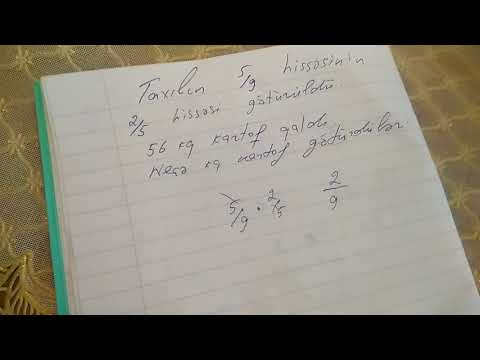 Taxılın 5/9 hissəsinin
2/5 hissəsi götürüldü
56 kq kartof qaldı.
Neçə kq kartof götürdülər.
5/9 · 2/5 2/9